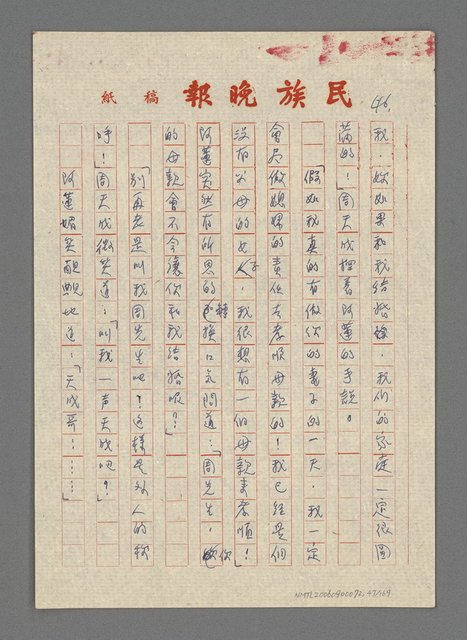 民族晚報 稿紙
46.
我．妳如果和我結婚後．我们的家庭一定很圓
滿的！」周天成握着阿蓮的手說。
「假如我真的有做你的妻子的一天．我一定
會尽做媳婦的責任去孝順母親的！我已經是個
沒有父母的女人子．我很想有一個母親來孝順！」
阿蓮突然有所思的轉換口気問道：「周先生．你
的母親會不会讓你和我結婚呢？」
「別再老是叫我周先生吧！這樣是外人的称
呼！」周天成微笑道：「叫我一声天成吧？」
阿蓮媚笑靦覥地道：「天成哥⋯⋯⋯」
NMTL20060900072.47/169